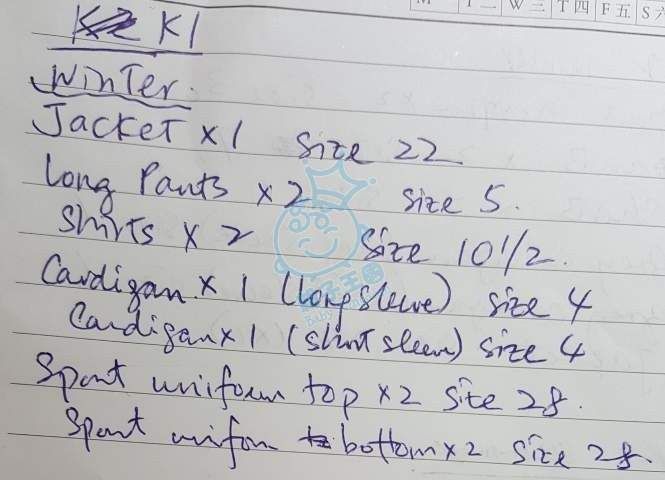 M T 二 W 三 T 四 F 五 S 六
K2 K1
Winter.
Jacket x 1 size 22
Long Pants x 2 size 5.
Shirts x 2 size 10 1/2.
Cardigan x 1 (long sleeve) size 4
Cardigan x 1 (short sleeve) size 4
Sport uniform top x 2 size 28.
Sport uniform bottom x 2 size 28.